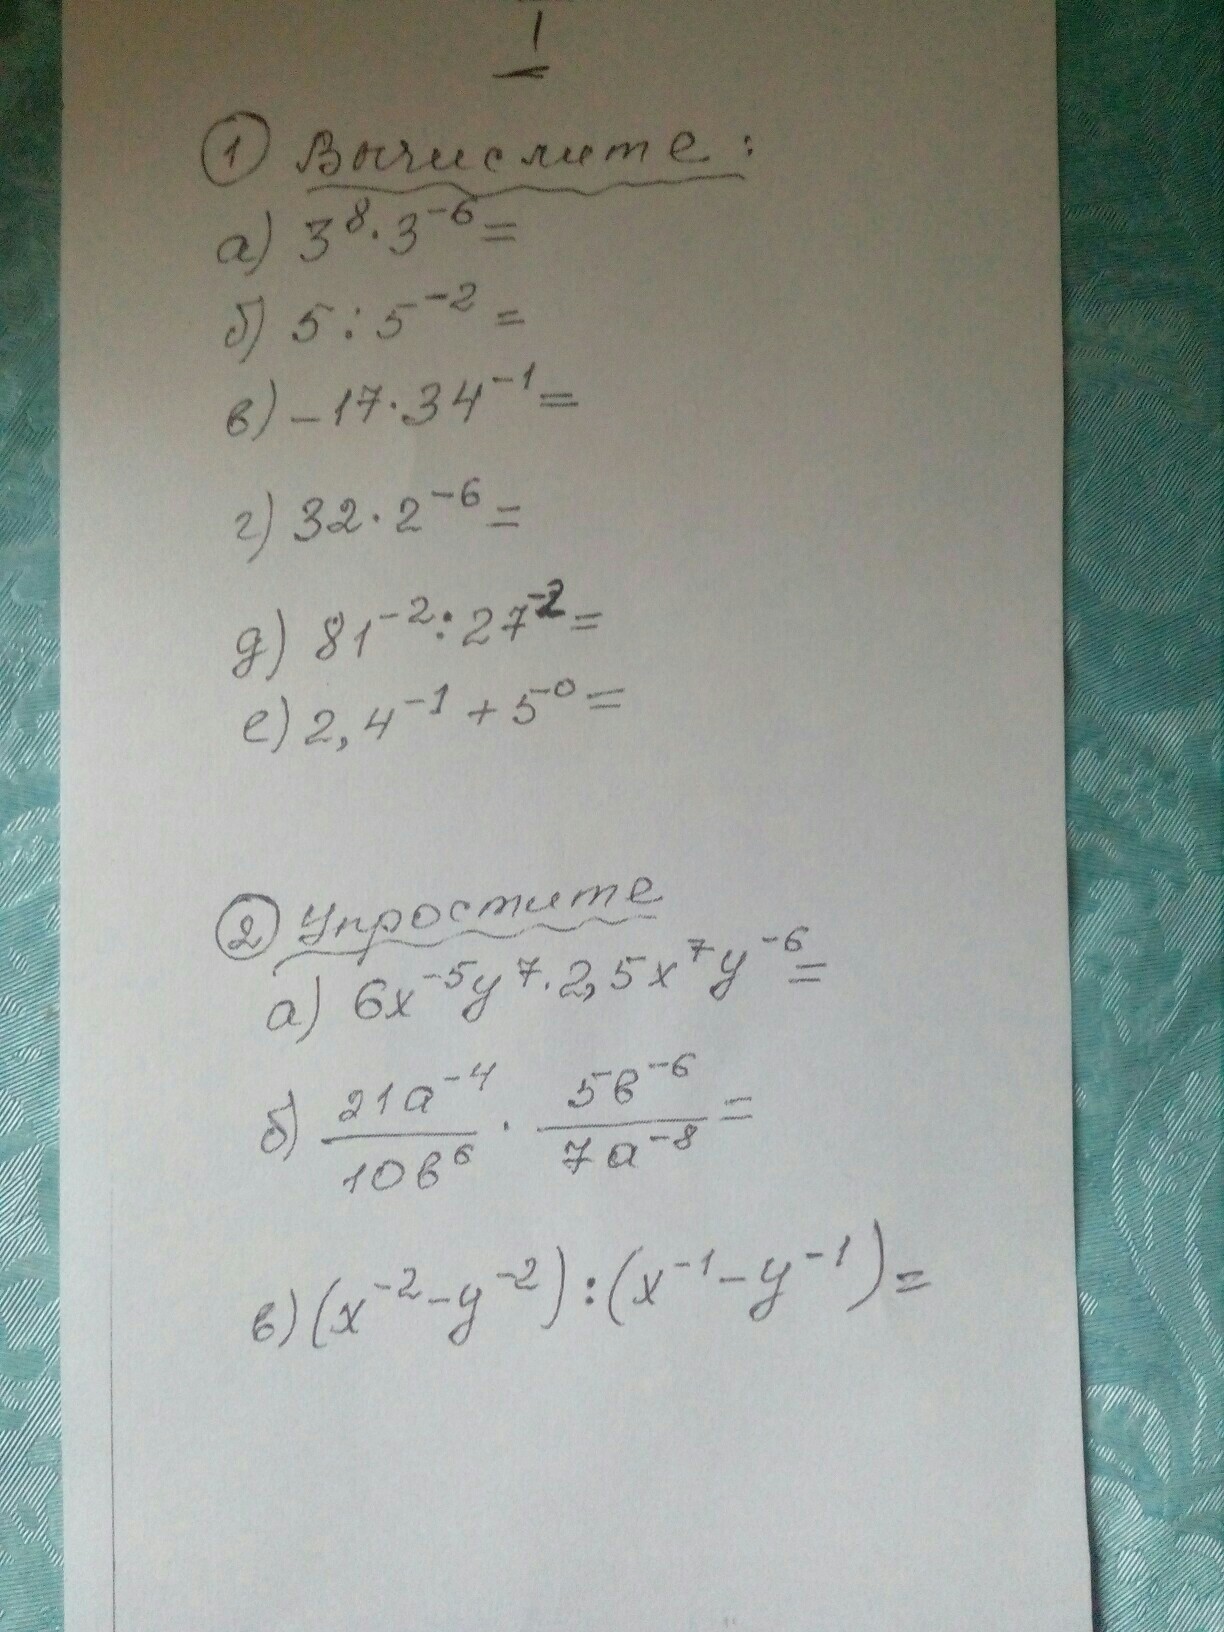 1
① Вычислите:
а) 3⁸·3⁻⁶=
б) 5:5⁻²=
в) -17·34⁻¹=
г) 32·2⁻⁶=
д) 81⁻²:27⁻²=
е) 2,4⁻¹+5⁻⁰=
② Упростите
а) 6x⁻⁵y⁷·2,5x⁷y⁻⁶=
б) 21a⁻⁴/10в⁶ · 5в⁻⁶/7a⁻⁸=
в) (x⁻²-y⁻²):(x⁻¹-y⁻¹)=